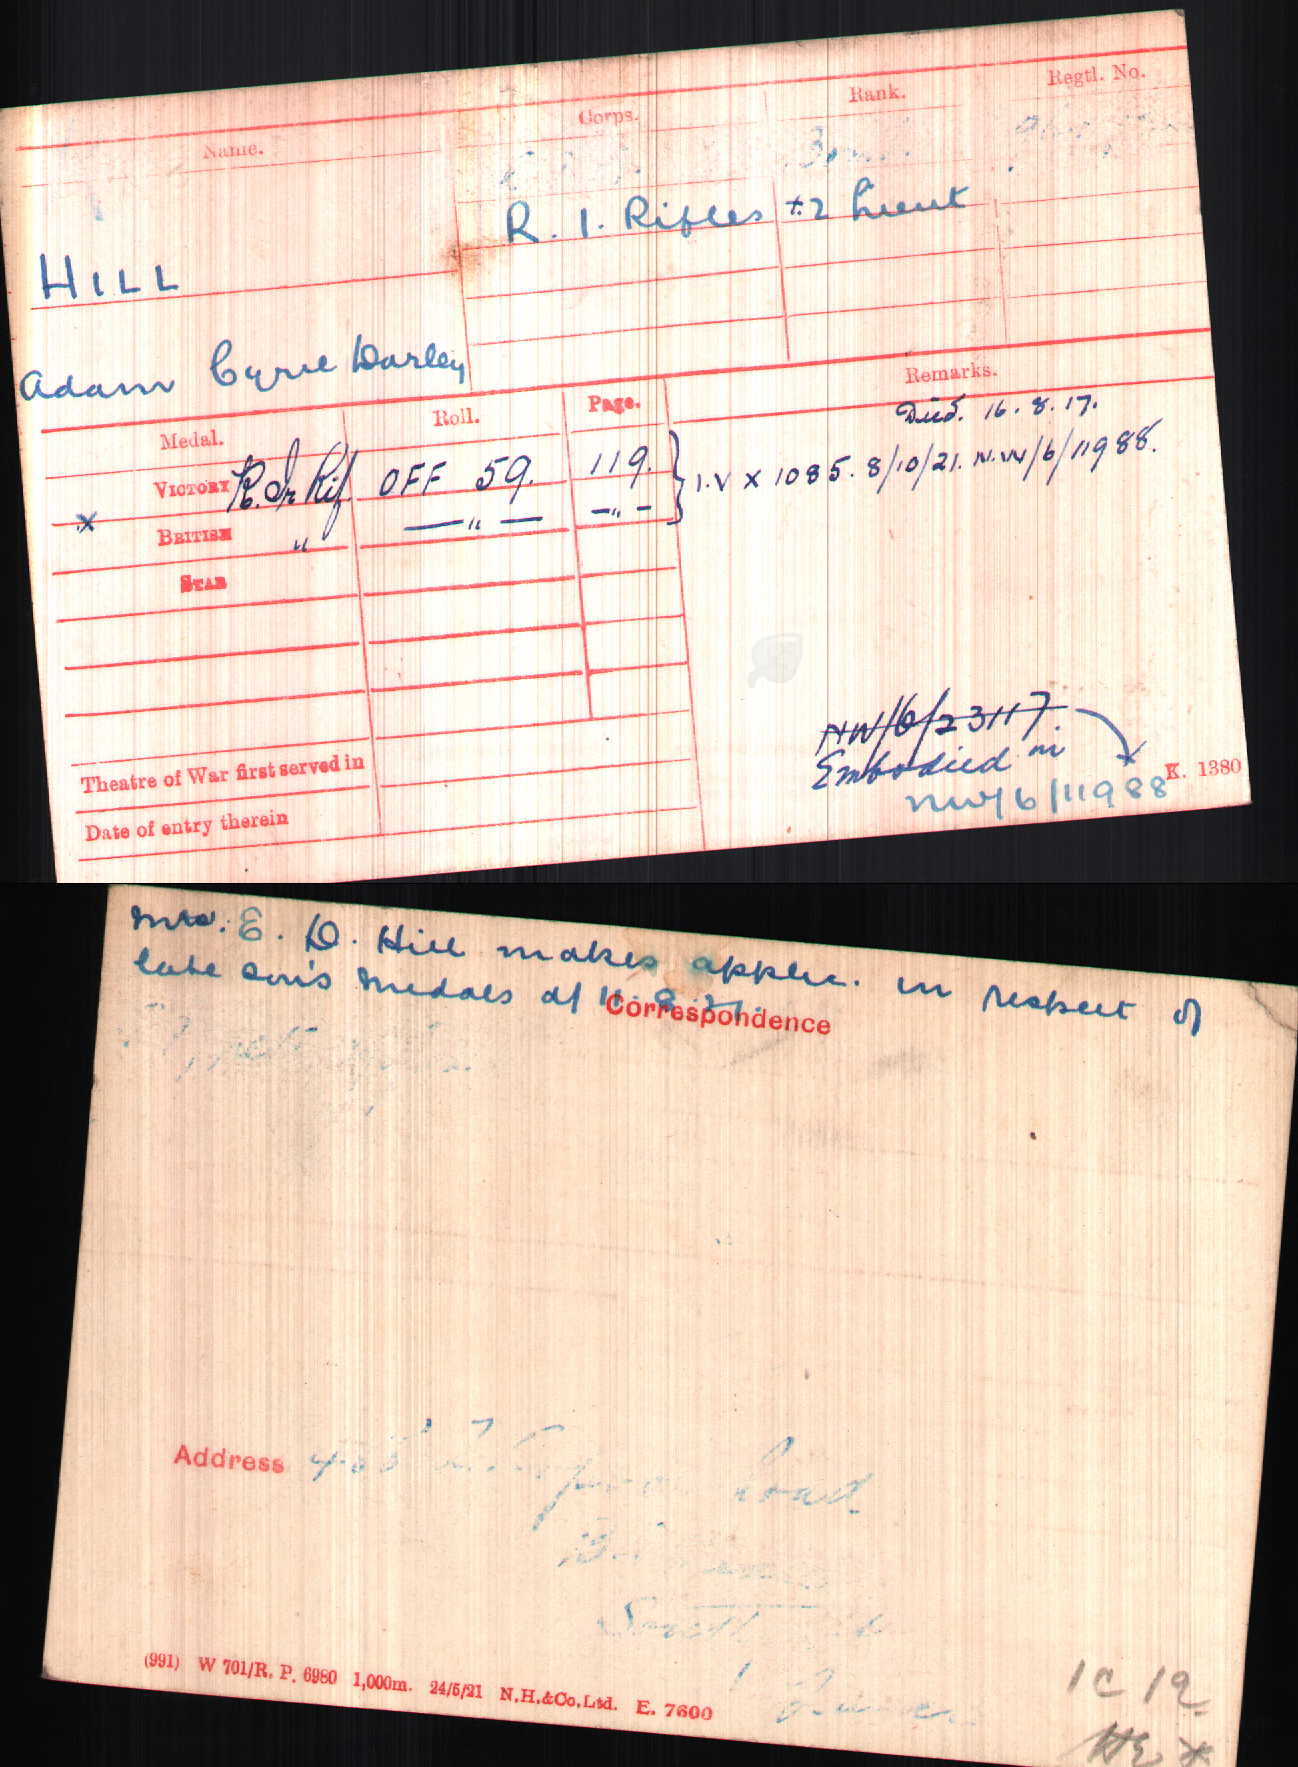 Name. Corps. Rank. Regtl. No.
R. I. Rifles 2 Lieut
HILL
Adam Cyril Darley
Medal. Roll. Page. Remarks.
Died. 16.8.17.
VICTORY R. Ir Rif OFF 59. 119. } I.V X 1085. 8/10/21. N.W/6/11988.
X BRITISH " — " — — " —
STAR
Theatre of War first served in
Date of entry therein
NW/6/23117.
Embodied in
NW/6/11988
K. 1380
Mrs. E. D. Hill makes applic. in respect of
late son's medals df 11.8.21.
Correspondence
Address
Road
(991) W 701/R. P. 6980 1,000m. 24/5/21 N.H.&Co.Ltd. E. 7600